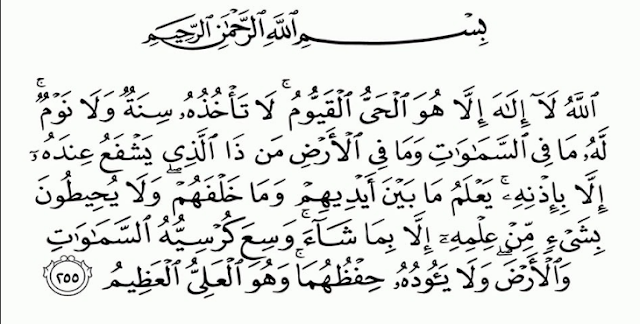 بِسْمِ ٱللَّهِ ٱلرَّحْمَٰنِ ٱلرَّحِيمِ
ٱللَّهُ لَآ إِلَٰهَ إِلَّا هُوَ ٱلْحَىُّ ٱلْقَيُّومُ ۚ لَا تَأْخُذُهُۥ سِنَةٌ وَلَا نَوْمٌ ۚ
لَّهُۥ مَا فِى ٱلسَّمَٰوَٰتِ وَمَا فِى ٱلْأَرْضِ مَن ذَا ٱلَّذِى يَشْفَعُ عِندَهُۥٓ
إِلَّا بِإِذْنِهِۦ ۚ يَعْلَمُ مَا بَيْنَ أَيْدِيهِمْ وَمَا خَلْفَهُمْ ۖ وَلَا يُحِيطُونَ
بِشَىْءٍ مِّنْ عِلْمِهِۦٓ إِلَّا بِمَا شَآءَ ۚ وَسِعَ كُرْسِيُّهُ ٱلسَّمَٰوَٰتِ
وَٱلْأَرْضَ ۖ وَلَا يَـُٔودُهُۥ حِفْظُهُمَا ۚ وَهُوَ ٱلْعَلِىُّ ٱلْعَظِيمُ ٢٥٥